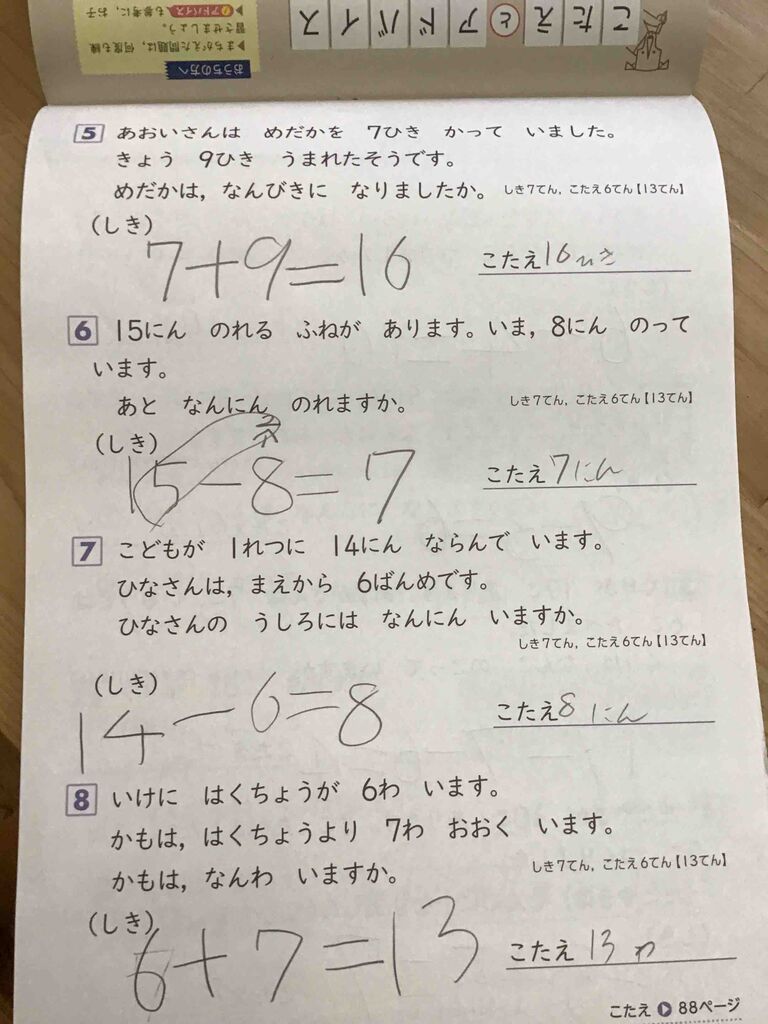 こたえとアドバイス
おうちの方へ
▶まちがえた問題は，何度も練
習させましょう。
▶アドバイス も参考に，お子
5 あおいさんは めだかを 7ひき かって いました。
きょう 9ひき うまれたそうです。
めだかは，なんびきに なりましたか。 しき7てん，こたえ6てん【13てん】
（しき）
7+9=16 こたえ16ひき
6 15にん のれる ふねが あります。いま，8にん のって
います。
あと なんにん のれますか。 しき7てん，こたえ6てん【13てん】
（しき）
15-8=7 こたえ7にん
7 こどもが 1れつに 14にん ならんで います。
ひなさんは，まえから 6ばんめです。
ひなさんの うしろには なんにん いますか。
しき7てん，こたえ6てん【13てん】
（しき）
14-6=8 こたえ8にん
8 いけに はくちょうが 6わ います。
かもは，はくちょうより 7わ おおく います。
かもは，なんわ いますか。 しき7てん，こたえ6てん【13てん】
（しき）
6+7=13 こたえ 13わ
こたえ ▶ 88ページ